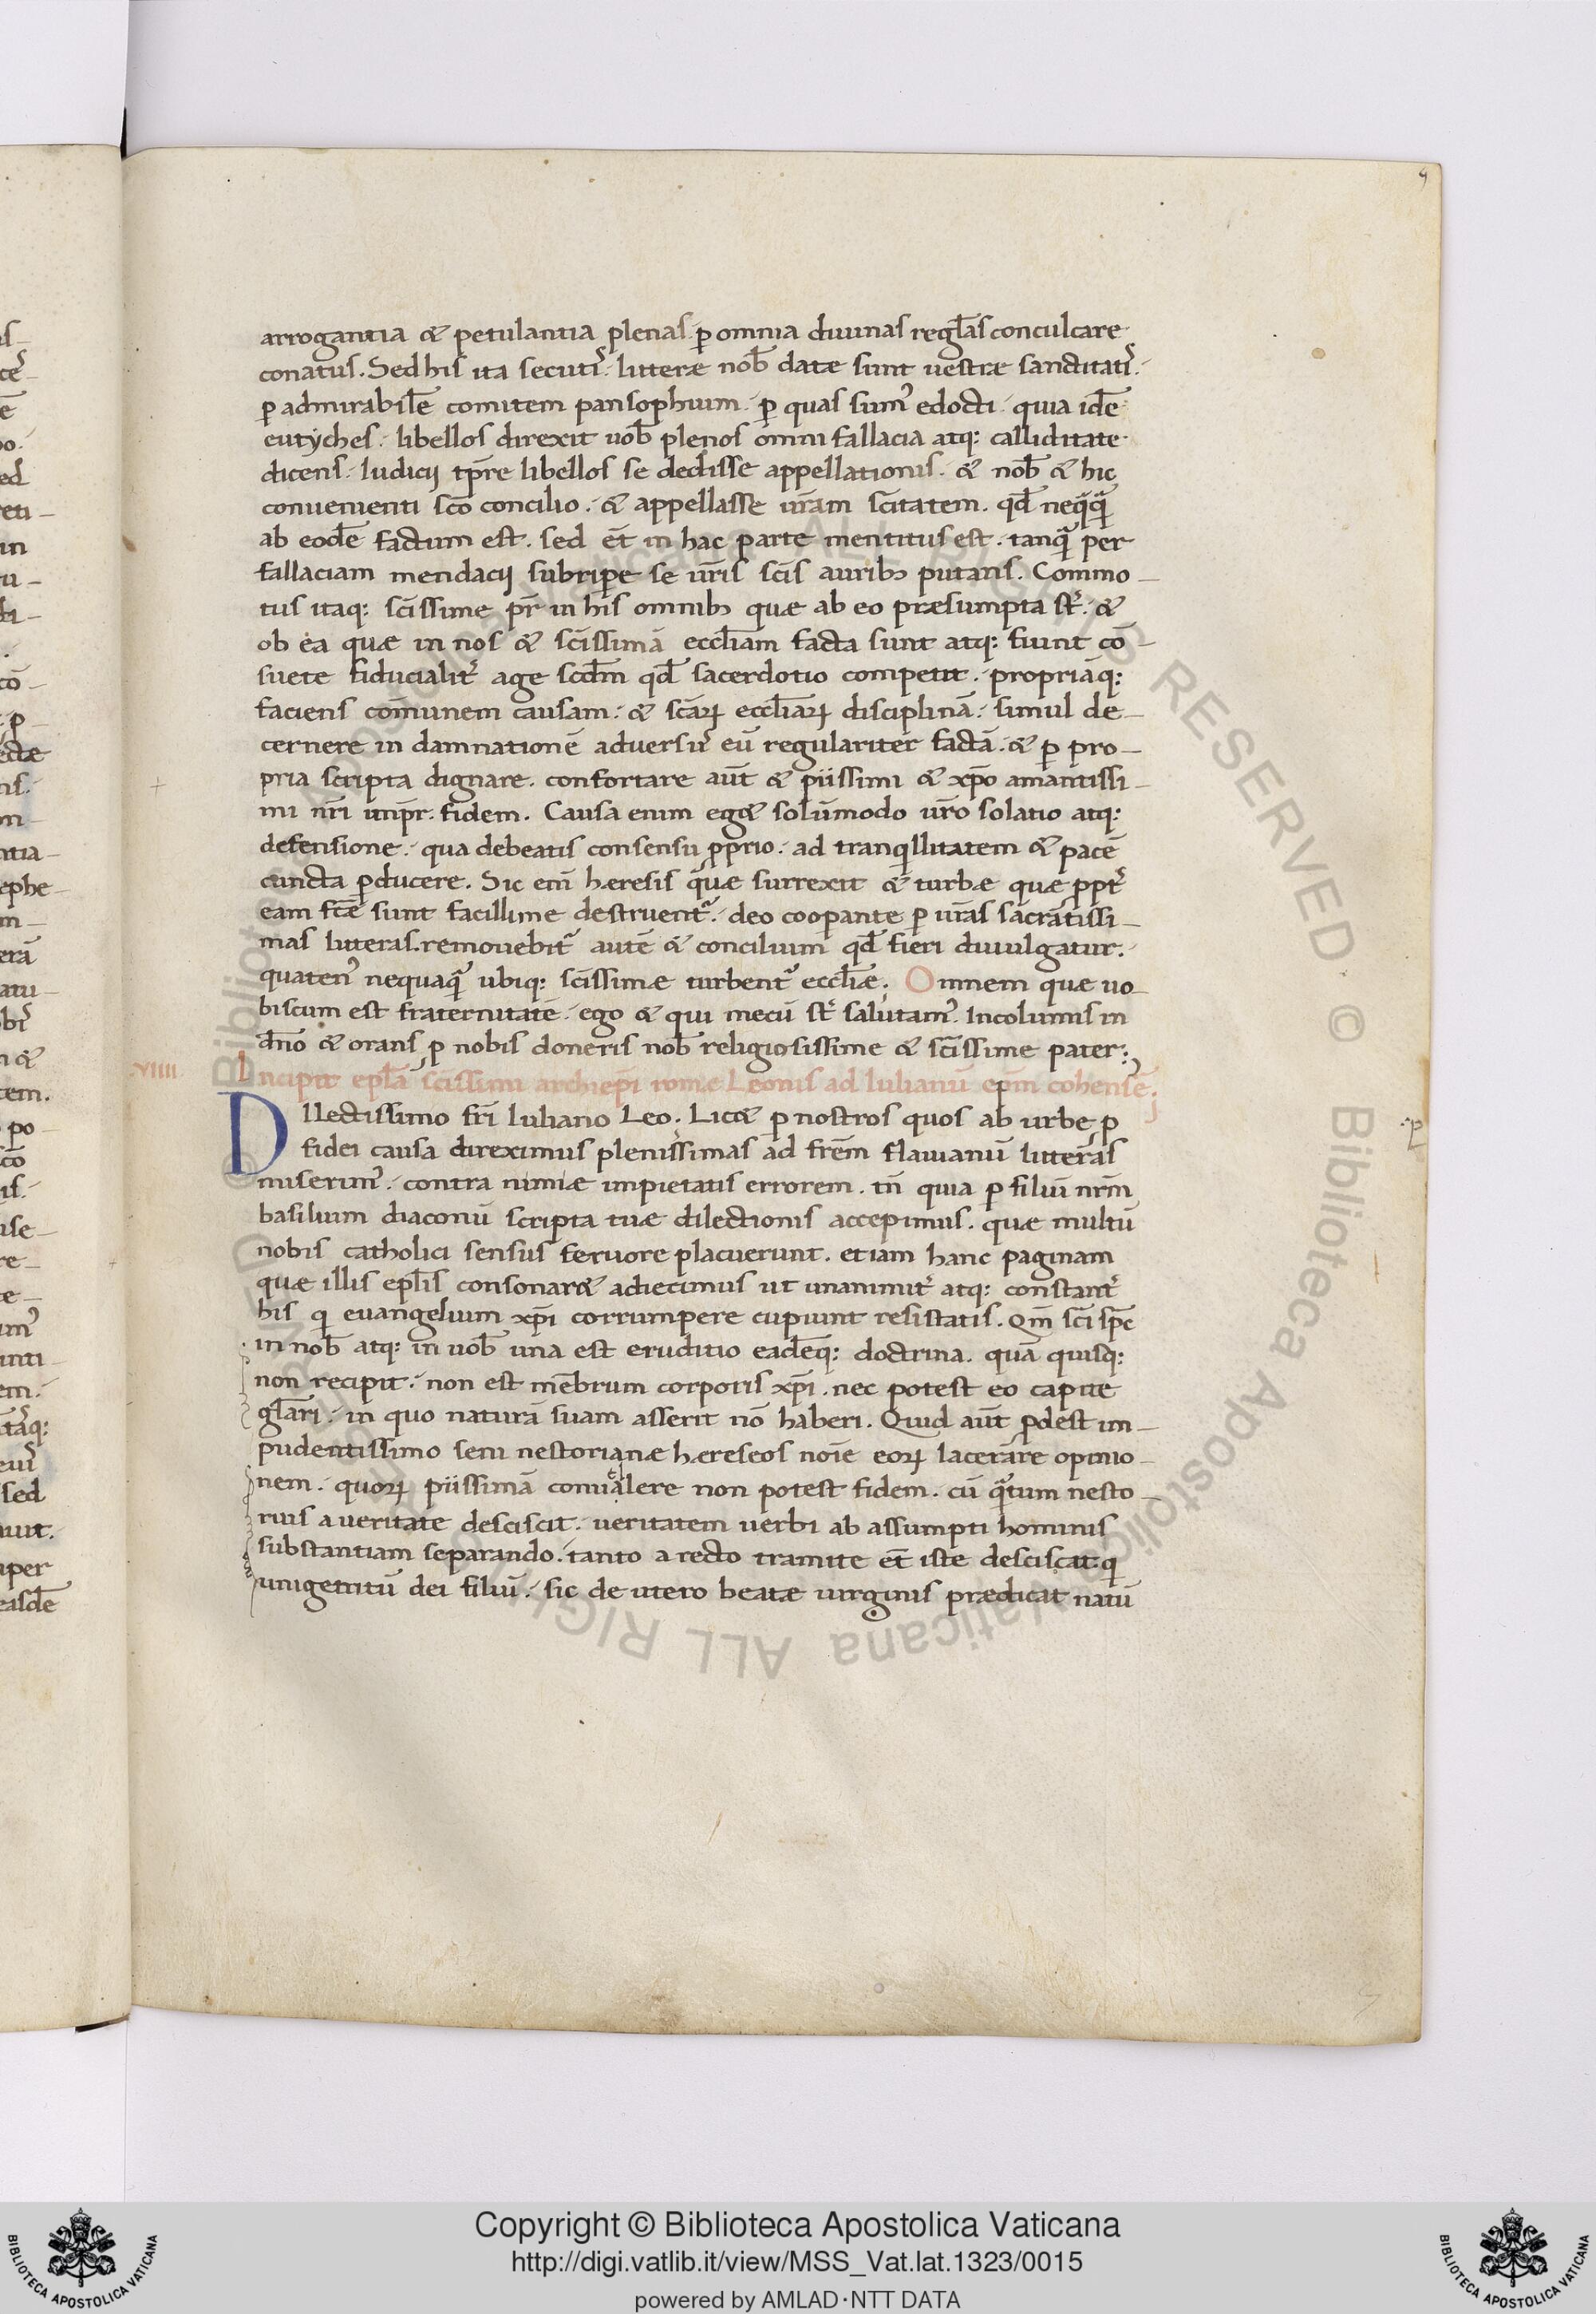 9
arrogantia & petulantia plenas. ꝑ omnia diuinas regłas conculcare.
conatus. Sed his ita secutis̉. litteræ nob̄ datæ sunt uestræ sanctitatis̉.
ꝑ admirabilē comitem pansophium. ꝑ quas sum᷒ edocti. quia idē
eutyches. libellos direxit uob̄ plenos omni fallacia atq: calliditate.
dicens. Iudicij tp̄re libellos se dedisse appellationis. & nob̄ & hic
conuenienti sc̄o concilio. & appellasse ur̄am sc̄itatem. qd̄ neq̄q̄
ab eodē factum est. sed et̄ in hac parte mentitus est. tanq̄ per
fallaciam mendacij subriꝑe se ur̄is sc̄is auribꝫ putans. Commo-
tus itaq: sc̄issime pr̄ in his omnibꝫ quæ ab eo præsumpta st̄. &
ob ea quæ in nos & sc̄issimā eccl̄iam facta sunt atq: fiunt cō-
suete fiducialit̉ age scd̄m qd̄ sacerdotio competit. propriāq:
faciens com̄unem causam. & sc̄aꝝ eccl̄iaꝝ disciplinā. simul de-
cernere in damnationē aduersus᷒ eū regulariter factā. & ꝑ pro-
pria scripta dignare. confortare aut̄ & piissimi & xp̄o amantissi-
mi nr̄i imp̄r. fidem. Causa enim eg& solūmodo ur̄o solatio atq:
defensione. qua debeatis consensu ꝓprio. ad tranq̇llitatem & pacē
cuncta ꝑducere. Sic em̄ hæresis quæ surrexit & turbæ quæ ꝓpt̉
eam fc̄æ sunt facillime destruent᷑. deo cooꝑante ꝑ ur̄as sacratissi-
mas litteras. remouebit᷑ autē & concilium qd̄ fieri diuulgatur.
quaten᷒ nequaq̄ ubiq: sc̄issimæ turbent᷑ eccl̄iæ. Omnem quæ uo-
biscum est fraternitatē. ego & qui mecū st̄ salutam᷒. Incolumis in
dn̄o & orans ꝓ nobis doneris nob̄ religiosissime & sc̄issime pater:,
VIIII Incipit epl̄a sc̄issimi archiep̄i rome Leonis ad Iulianū ep̄m cohensē.
DIlectissimo fr̄i Iuliano Leo. Lic& ꝑ nostros quos ab urbe ꝓ
fidei causa direximus plenissimas ad fr̄em flauianū litteras
miserim᷒. contra nimiæ impietatis errorem. tn̄ quia ꝑ filiū nr̄m
basilium diaconū scripta tuæ dilectionis accepimus. quæ multū
nobis catholici sensus feruore placuerunt. etiam hanc paginam
quæ illis epl̄is consonar& adiecimus ut unanimit̉ atq: constant̉
his q̇ euangelium xp̄i corrumpere cupiunt resistatis. Qm̄ sc̄i sp̄c
in nob̄ atq: in uob̄ una est eruditio eadēq: doctrina. quā quisq:
non recipit. non est mēbrum corporis xp̄i. nec potest eo capite
gl̄ari. in quo naturā suam asserit nō haberi. Quid aut̄ ꝓdest im-
pudentissimo seni nestorianæ hæreseos noīe eoꝝ lacerare opinio-
nem. quoꝝ piissimā conuellere non potest fidem. cū q̄tum nesto-
rius a ueritate desciscit. ueritatem uerbi ab assumpti hominis
substantiam separando. tanto a recto tramite et̄ iste desciscat: q̇
unigenitū dei filiū. sic de utero beatæ uirginis prædicat natū
Copyright © Biblioteca Apostolica Vaticana
http://digi.vatlib.it/view/MSS_Vat.lat.1323/0015
powered by AMLAD·NTT DATA